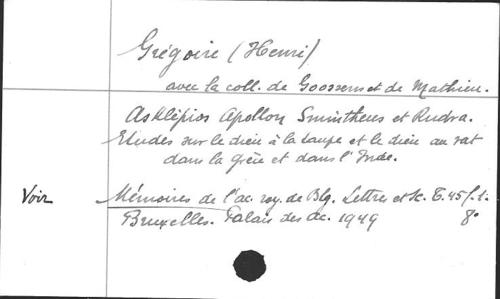 Grégoire (Henri)
avec la coll. de Goossens et de Mathieu.
Asklépios Apollon Smintheus et Rudra.
Etudes sur le dieu à la taupe et le dieu au rat
dans la Grèce et dans l'Inde.
Voir Mémoires de l'ac. roy. de Blg. Lettres et sc. T. 45 f. 1.
Bruxelles. Palais des Ac. 1949 8°